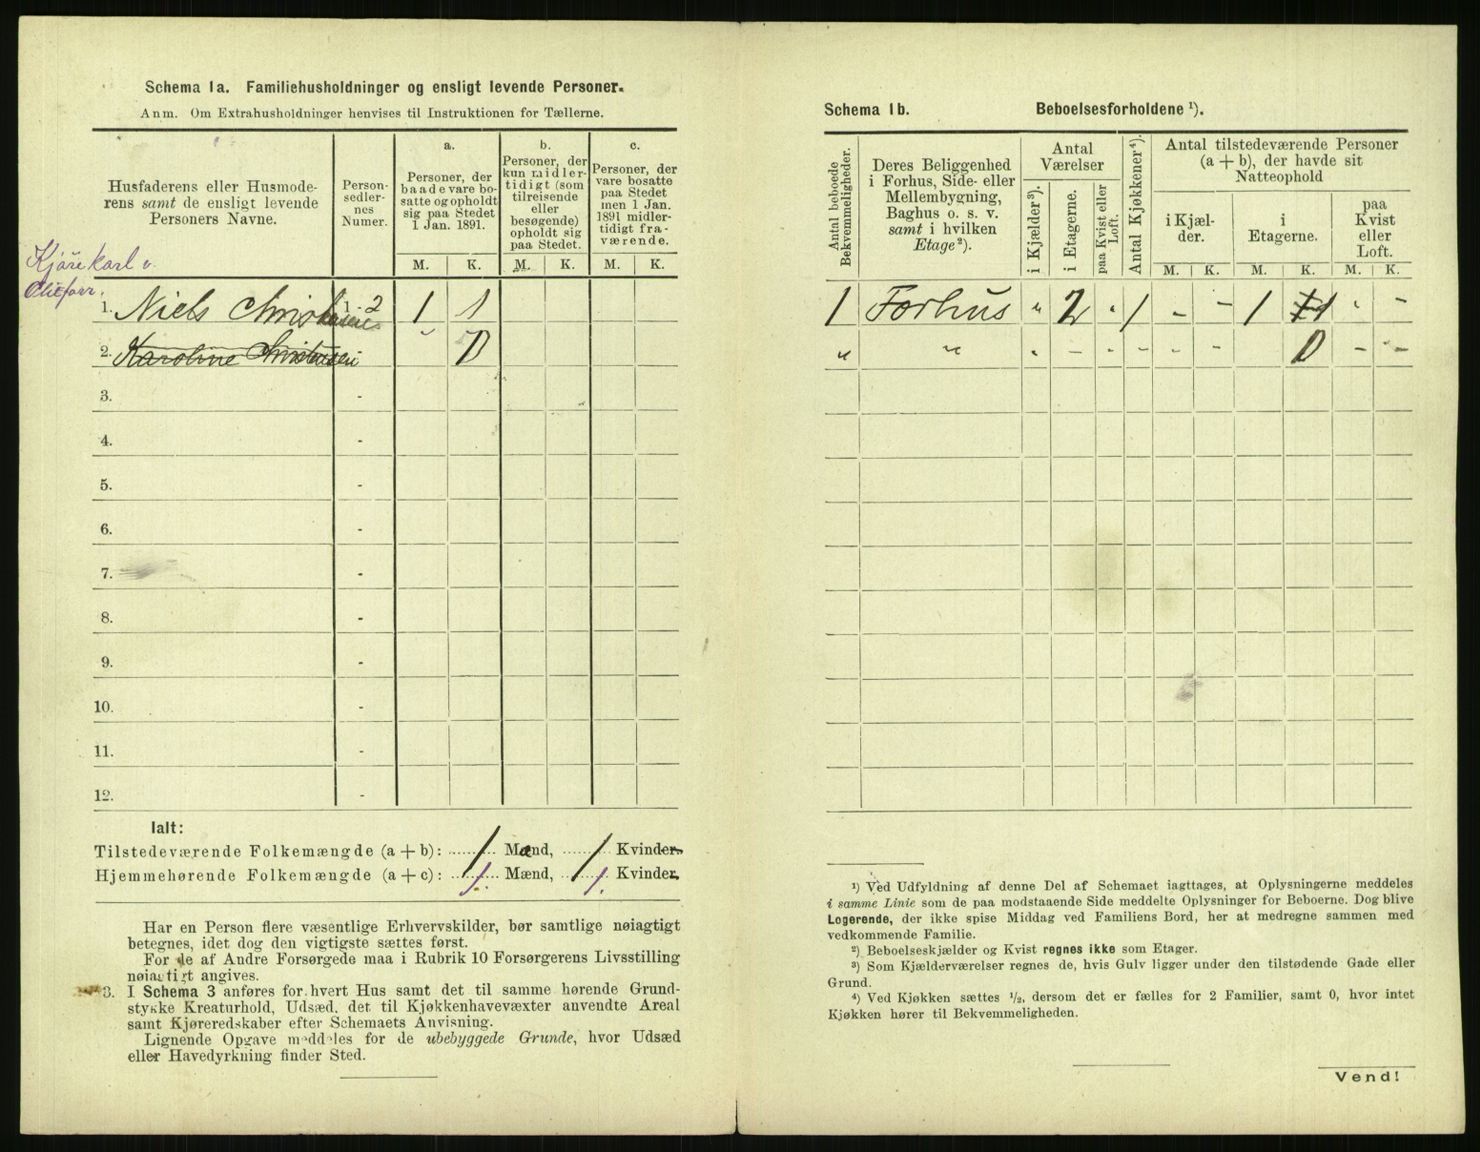 Schema 1a. Familiehusholdninger og ensligt levende Personer.
Anm. Om Extrahusholdninger henvises til Instruktionen for Tællerne.
Husfaderens eller Husmode-
rens samt de ensligt levende
Personers Navne.
Person-
sedler-
nes
Numer.
a.
Personer, der
baade vare bo-
satte og opholdt
sig paa Stedet
1 Jan. 1891.
b.
Personer, der
kun midler-
tidigt (som
tilreisende
eller
besøgende)
opholdt sig
paa Stedet.
c.
Personer, der
vare bosatte
paa Stedet
men 1 Jan.
1891 midler-
tidigt fra-
værende.
M. K. M. K. M. K.
Kjørekarl v.
1. Niels Christensen 1 - 2 1 1
2. Karoline Christensen " 0
3. -
4. -
5. -
6. -
7. -
8. -
9. -
10. -
11. -
12. -
Ialt:
Tilstedeværende Folkemængde (a + b): 1 Mænd, 1 Kvinder
Hjemmehørende Folkemængde (a + c): 1 Mænd, 1 Kvinder,
Har en Person flere væsentlige Erhvervskilder, bør samtlige nøiagtigt
betegnes, idet dog den vigtigste sættes først.
For de af Andre Forsørgede maa i Rubrik 10 Forsørgerens Livsstilling
nøiagtigt angives.
3. I Schema 3 anføres for hvert Hus samt det til samme hørende Grund-
stykke Kreaturhold, Udsæd, det til Kjøkkenhavevæxter anvendte Areal
samt Kjøreredskaber efter Schemaets Anvisning.
Lignende Opgave meddeles for de ubebyggede Grunde, hvor Udsæd
eller Havedyrkning finder Sted.
Schema 1b. Beboelsesforholdene ¹).
Antal beboede
Bekvemmeligheder.
Deres Beliggenhed
i Forhus, Side- eller
Mellembygning,
Baghus o. s. v.
samt i hvilken
Etage²).
Antal
Værelser
i Kjælder³).
i Etagerne.
paa Kvist eller
Loft.
Antal Kjøkkener⁴).
Antal tilstedeværende Personer
(a + b), der havde sit
Natteophold
i Kjæl-
der.
i
Etagerne.
paa
Kvist
eller
Loft.
M. K. M. K. M. K.
1 Forhus " 2 " 1 - - 1 1 " -
" " " - - - - - 0 - -
¹) Ved Udfyldning af denne Del af Schemaet iagttages, at Oplysningerne meddeles
i samme Linie som de paa modstaaende Side meddelte Oplysninger for Beboerne. Dog blive
Logerende, der ikke spise Middag ved Familiens Bord, her at medregne sammen med
vedkommende Familie.
²) Beboelseskjælder og Kvist regnes ikke som Etager.
³) Som Kjælderværelser regnes de, hvis Gulv ligger under den tilstødende Gade eller
Grund.
⁴) Ved Kjøkken sættes ¹/₂, dersom det er fælles for 2 Familier, samt 0, hvor intet
Kjøkken hører til Bekvemmeligheden.
Vend!